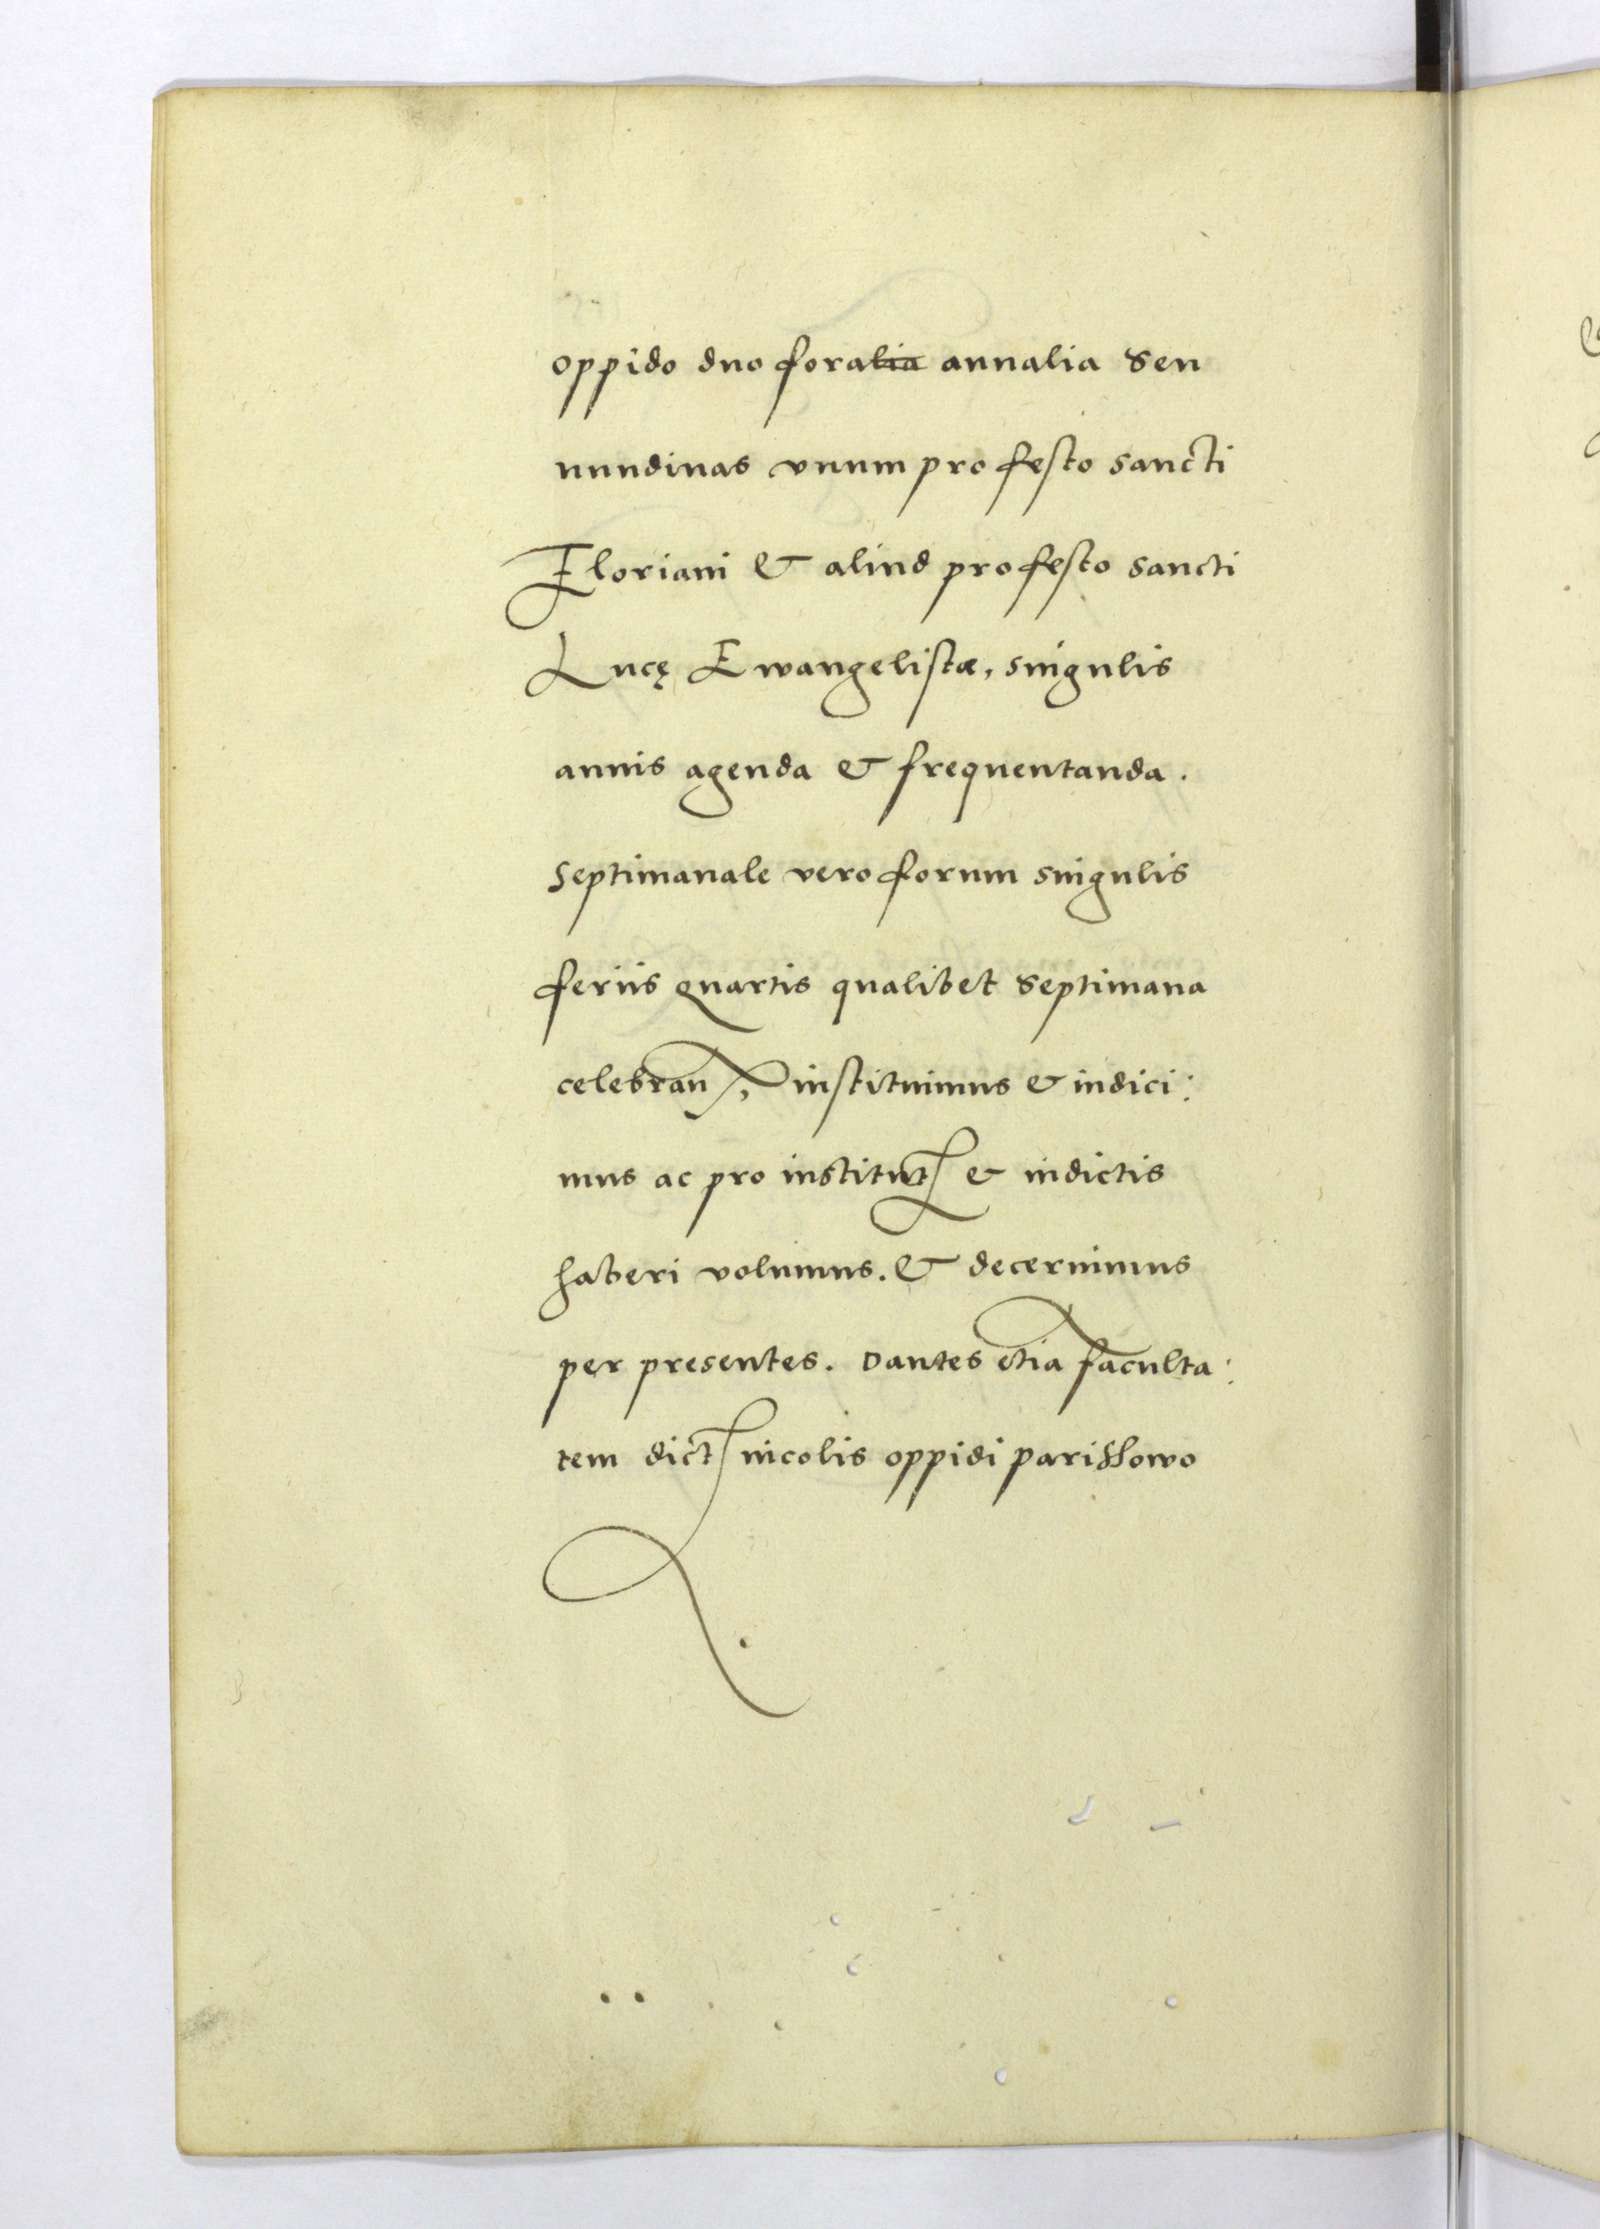 oppido duo foralia annalia seu
nundinas vnum pro festo sancti
Floriani & aliud pro festo sancti
Lucę Ewangelistæ, singulis
annis agenda & frequentanda.
septimanale vero forum singulis
feriis quartis qualibet septimana
celebran, instituimus & indici:
mus ac pro institut & indictis
haberi volumus. & decernimus
per presentes. Dantes etia faculta:
tem dict incolis oppidi parissowo